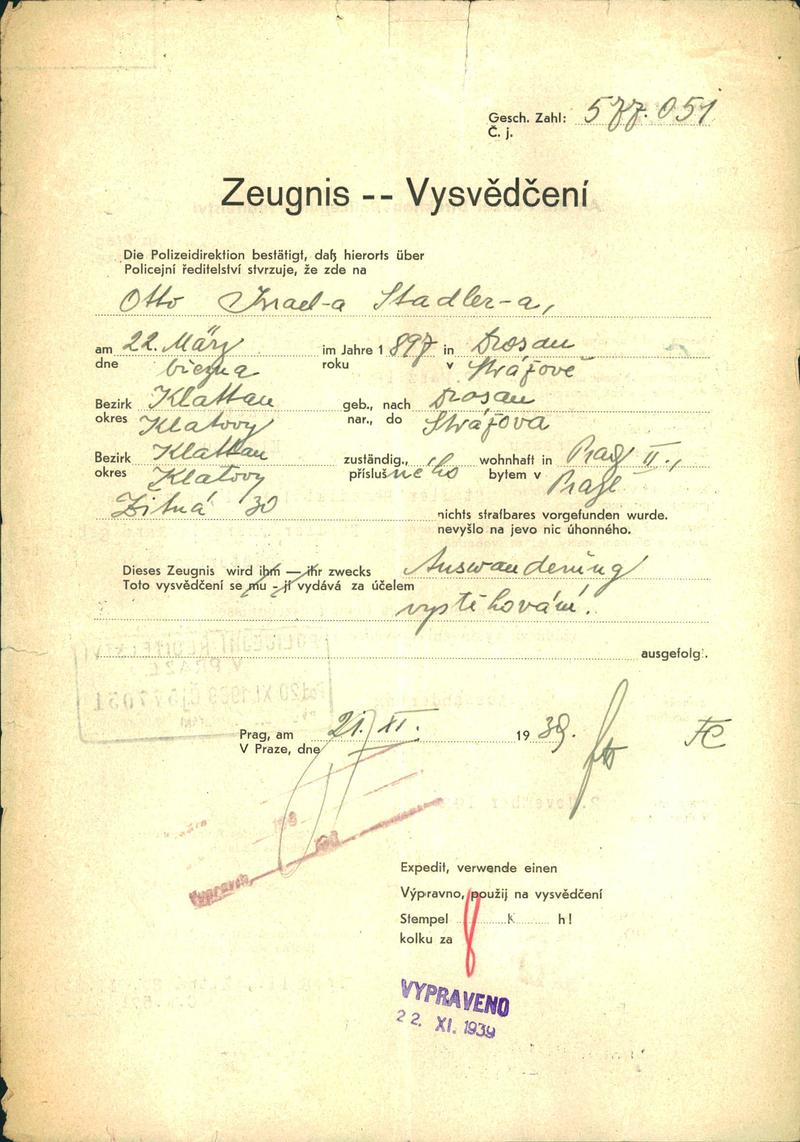 Gesch. Zahl: 577.051
Č. j.
Zeugnis -- Vysvědčení
Die Polizeidirektion bestätigt, daß hierorts über
Policejní ředitelství stvrzuje, že zde na
Otto Israel-a Stadler-a,
am 22. März im Jahre 1 897 in Drosau
dne března roku v Strážově
Bezirk Klattau geb., nach Drosau
okres Klatovy nar., do Strážova
Bezirk Klattau zuständig., wohnhaft in Prag II.,
okres Klatovy příslušného bytem v Praze
Žitná 30 nichts strafbares vorgefunden wurde.
nevyšlo na jevo nic úhonného.
Dieses Zeugnis wird ihm — ihr zwecks Auswanderung
Toto vysvědčení se mu - jí vydává za účelem
vystěhování.
ausgefolg .
Prag, am 21. XI. 1939.
V Praze, dne
Expedit, verwende einen
Výpravno, použij na vysvědčení
Stempel K h!
kolku za 8
VYPRAVENO
22. XI. 1939